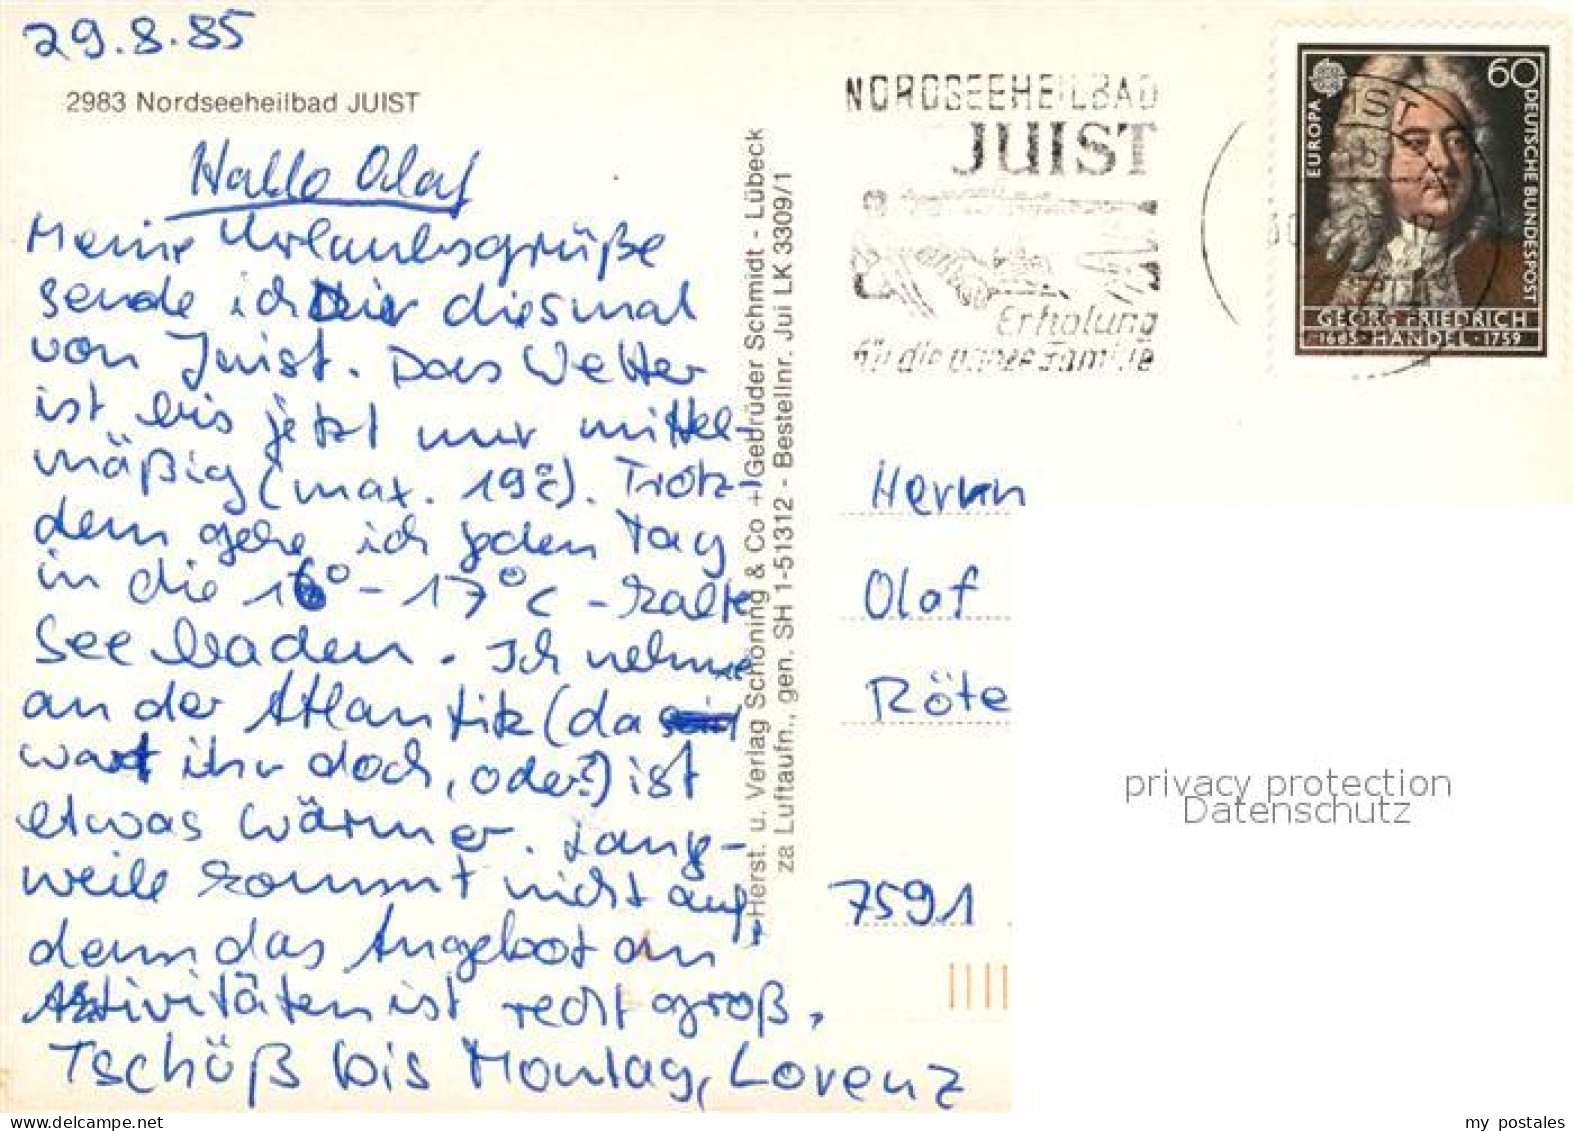 29.8.85
2983 Nordseeheilbad JUIST
Hallo Olaf
Meine Urlaubsgrüße
sende ich Dir diesmal
von Juist. Das Wetter
ist bis jetzt nur mittel-
mäßig (max. 19°C). Trotz-
dem gehe ich jeden Tag
in die 16° - 17°C - kalte
See baden. Ich nehme
an der Atlantik (da
wart ihr doch, oder?) ist
etwas wärmer. Lang-
weile kommt nicht auf,
denn das Angebot an
Aktivitäten ist recht groß.
Tschüß bis Montag, Lorenz
Herst. u. Verlag Schöning & Co + Gebrüder Schmidt - Lübeck
za Luftaufn., gen. SH 1-51312 - Bestellnr. Jui LK 3309/1
NORDSEEHEILBAD
JUIST
Erholung
für die ganze Familie
60
EUROPA
DEUTSCHE BUNDESPOST
GEORG FRIEDRICH
1685 · HÄNDEL · 1759
Herrn
Olaf
Röte
7591
privacy protection
Datenschutz
my postales